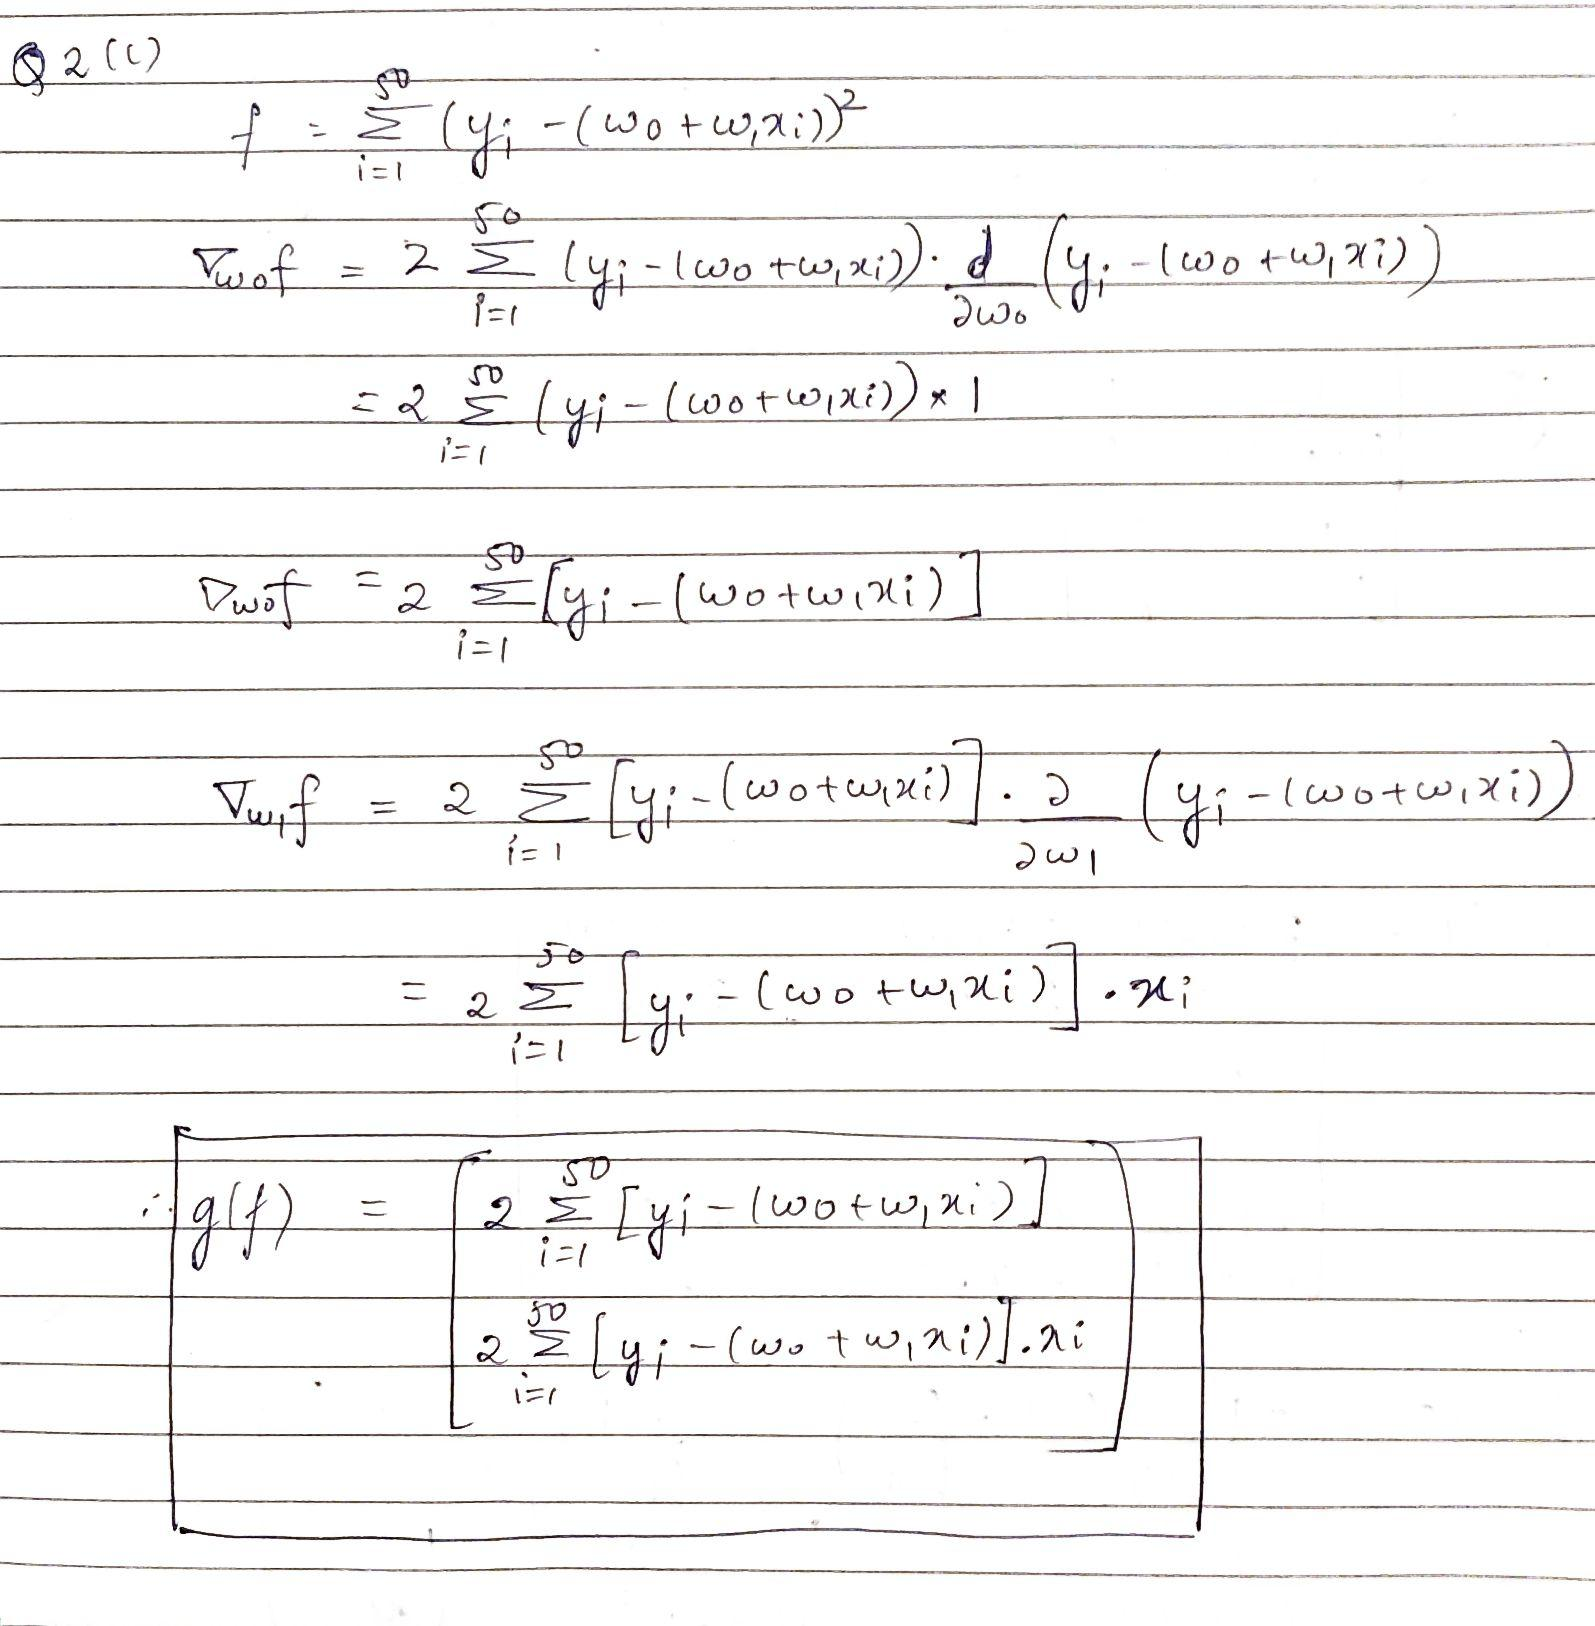 Q 2 (c)
f = \sum_{i=1}^{50} (y_i - (w_0 + w_1 x_i))^2
∇_{w_0} f = 2 \sum_{i=1}^{50} (y_i - (w_0 + w_1 x_i)) · \frac{d}{∂w_0} (y_i - (w_0 + w_1 x_i))
= 2 \sum_{i=1}^{50} (y_i - (w_0 + w_1 x_i)) * 1
∇_{w_0} f = 2 \sum_{i=1}^{50} [y_i - (w_0 + w_1 x_i)]
∇_{w_1} f = 2 \sum_{i=1}^{50} [y_i - (w_0 + w_1 x_i)] · \frac{∂}{∂w_1} (y_i - (w_0 + w_1 x_i))
= 2 \sum_{i=1}^{50} [y_i - (w_0 + w_1 x_i)] · x_i
∴ g(f) = [ 2 \sum_{i=1}^{50} [y_i - (w_0 + w_1 x_i)]
2 \sum_{i=1}^{50} [y_i - (w_0 + w_1 x_i)] · x_i ]